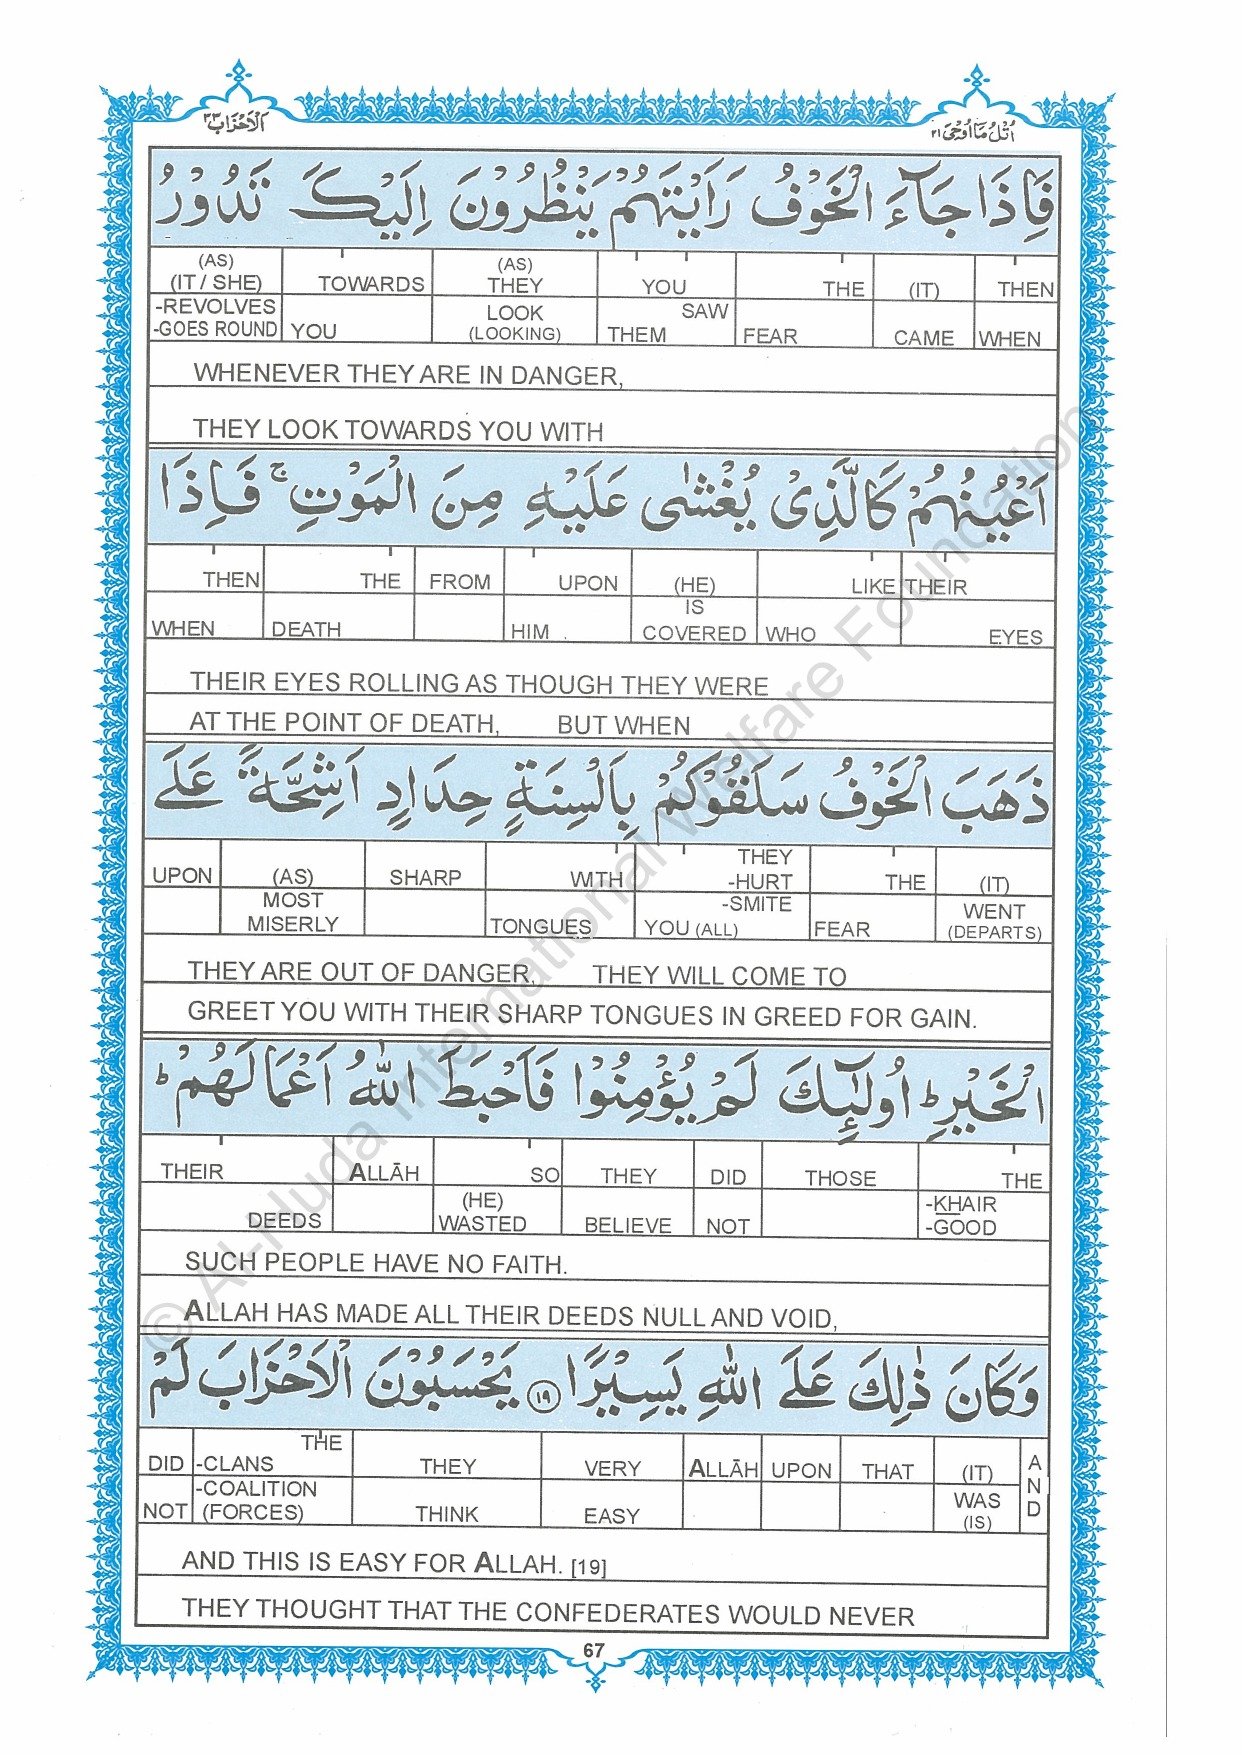 الاحزاب ٣٣
اتل ما اوحی ٢١
فَاِذَا جَآءَ الْخَوْفُ رَاَيْتَهُمْ يَنْظُرُوْنَ اِلَيْكَ تَدُوْرُ
(AS) (AS)
(IT / SHE) TOWARDS THEY YOU THE (IT) THEN
-REVOLVES LOOK SAW
-GOES ROUND YOU (LOOKING) THEM FEAR CAME WHEN
WHENEVER THEY ARE IN DANGER,
THEY LOOK TOWARDS YOU WITH
اَعْيُنُهُمْ كَالَّذِیْ يُغْشٰی عَلَيْهِ مِنَ الْمَوْتِ ۚ فَاِذَا
THEN THE FROM UPON (HE) LIKE THEIR
IS
WHEN DEATH HIM COVERED WHO EYES
THEIR EYES ROLLING AS THOUGH THEY WERE
AT THE POINT OF DEATH, BUT WHEN
ذَهَبَ الْخَوْفُ سَلَقُوْكُمْ بِاَلْسِنَةٍ حِدَادٍ اَشِحَّةً عَلَی
THEY
UPON (AS) SHARP WITH -HURT THE (IT)
MOST -SMITE WENT
MISERLY TONGUES YOU (ALL) FEAR (DEPARTS)
THEY ARE OUT OF DANGER, THEY WILL COME TO
GREET YOU WITH THEIR SHARP TONGUES IN GREED FOR GAIN.
الْخَيْرِ ؕ اُولٰٓئِكَ لَمْ يُؤْمِنُوْا فَاَحْبَطَ اللّٰهُ اَعْمَالَهُمْ ؕ
THEIR ALLĀH SO THEY DID THOSE THE
(HE) -KHAIR
DEEDS WASTED BELIEVE NOT -GOOD
SUCH PEOPLE HAVE NO FAITH.
ALLAH HAS MADE ALL THEIR DEEDS NULL AND VOID,
وَكَانَ ذٰلِكَ عَلَی اللّٰهِ يَسِيْرًا ۝١٩ يَحْسَبُوْنَ الْاَحْزَابَ لَمْ
THE
DID -CLANS THEY VERY ALLĀH UPON THAT (IT) AND
-COALITION WAS
NOT (FORCES) THINK EASY (IS)
AND THIS IS EASY FOR ALLAH. [19]
THEY THOUGHT THAT THE CONFEDERATES WOULD NEVER
67
© Al-Huda International Welfare Foundation